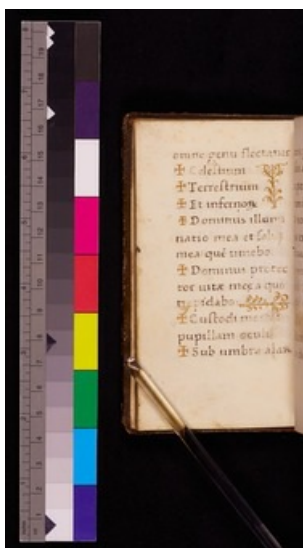 omne genu flectatur
✠ Celestium
✠ Terrestrium
✠ Et infernor
✠ Dominus illumi
natio mea et salus
mea quē timebo
✠ Dominus protec
tor uitæ meæ a quo
trepidabo
✠ Custodi me
pupillam oculi
✠ Sub umbra alar